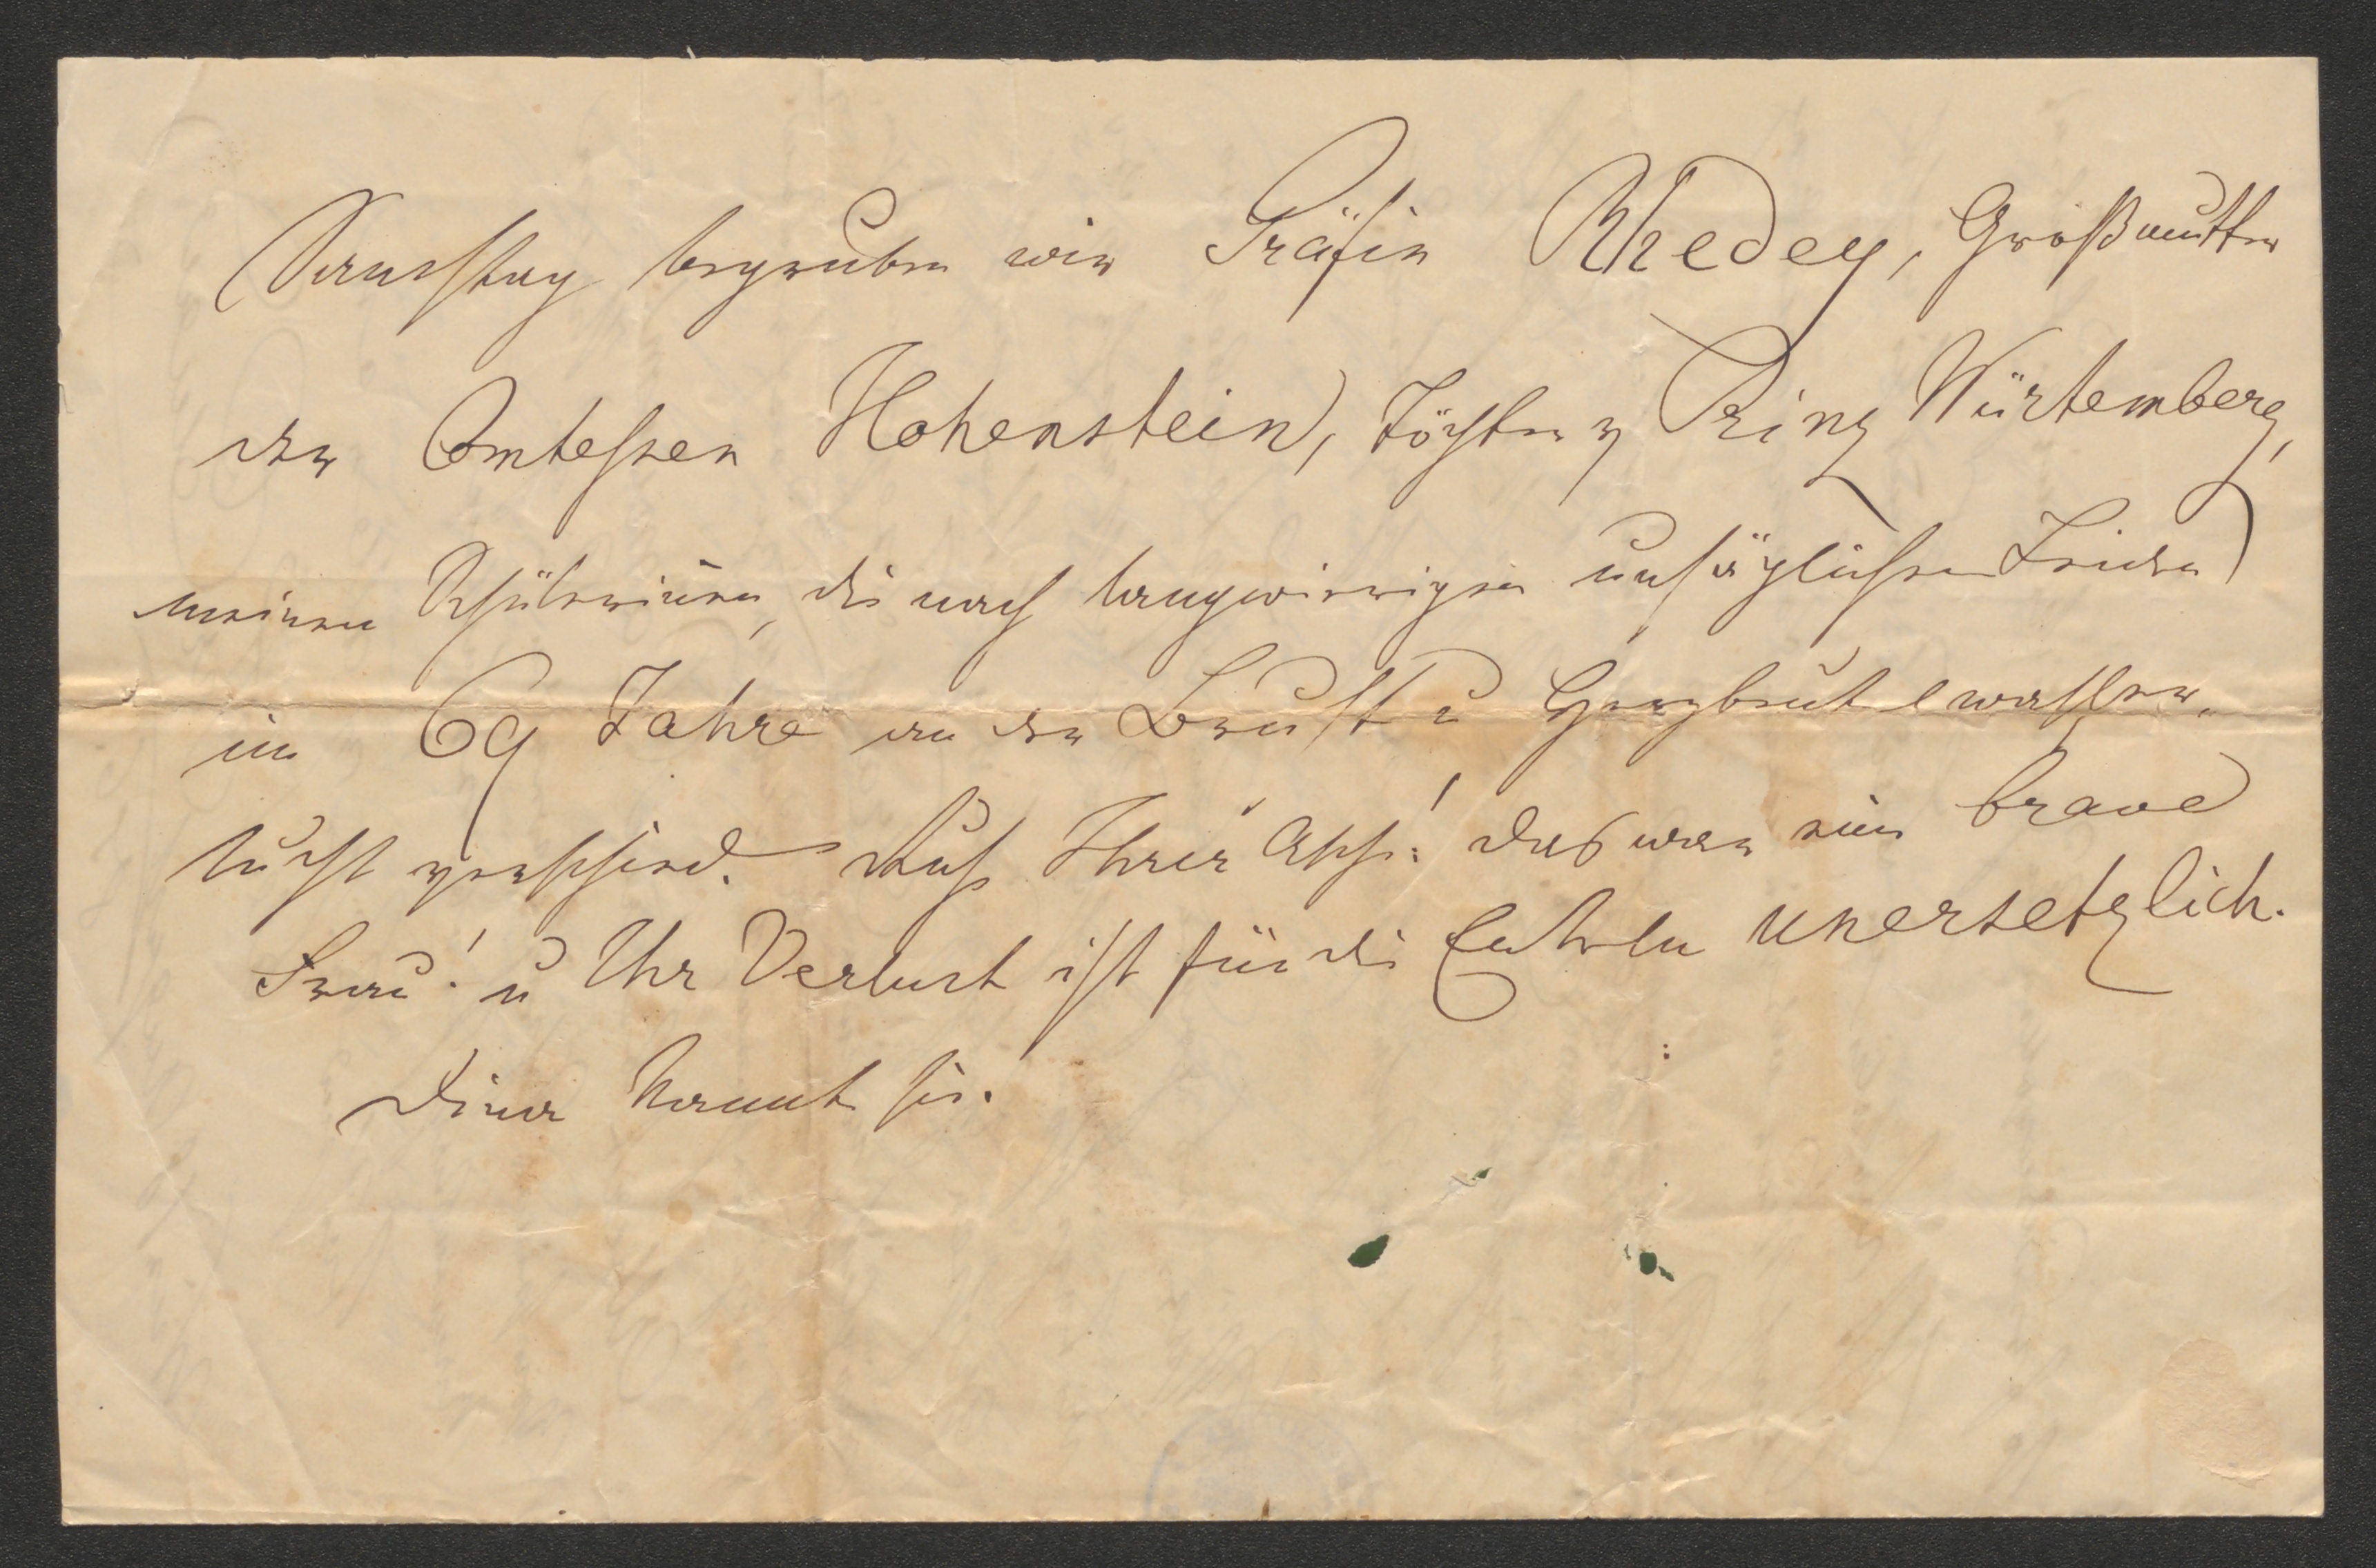 Samstag begruben wir Gräfin Rhedey, Großmutter
der Comtessen Hohenstein, Töchter Prinz Würtemberg,
meinen Schülerinen, die nach langwierigen unsäglichen Leiden
im 69 Jahre an der Brust u Herzbeutelwasser-
sucht verschied. Ihrer das war eine brave
Frau! u Ihr Verlust ist für die Enkeln unersetzlich.
Diener kannte sie.